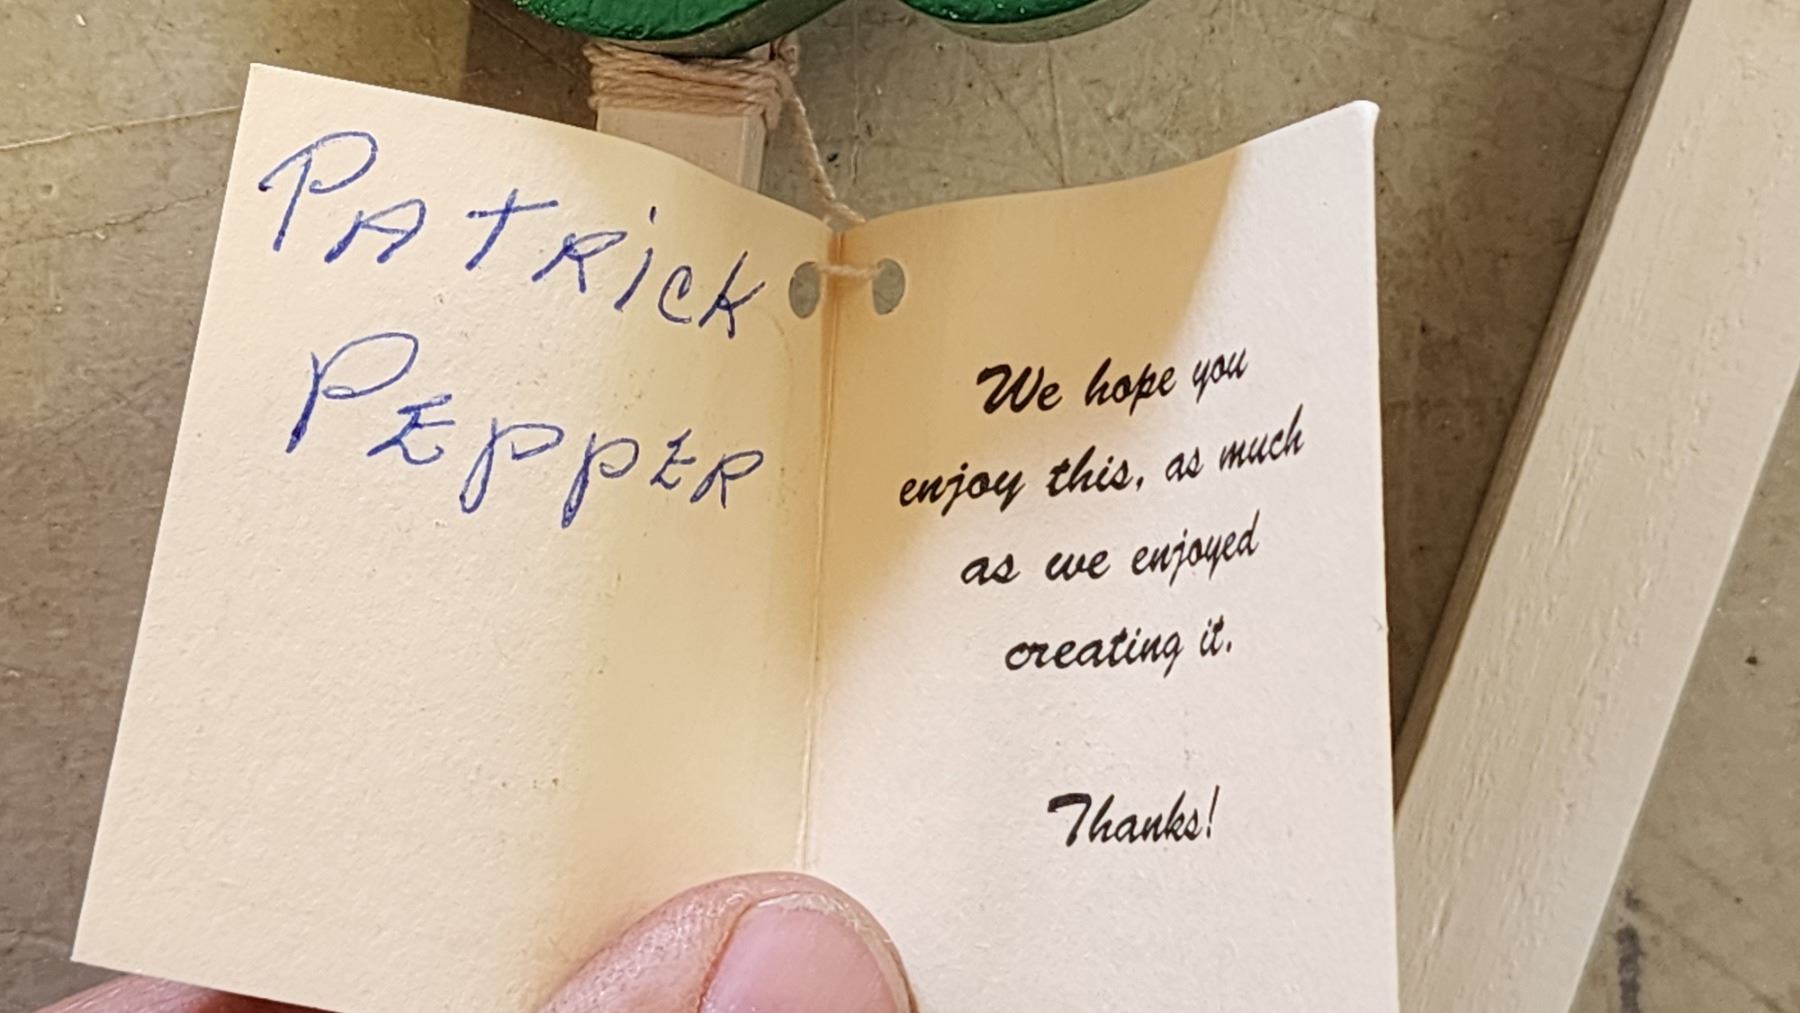 PATRiCK
PEPPER
We hope you
enjoy this, as much
as we enjoyed
creating it.
Thanks!